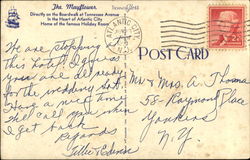 The Mayflower
Directly on the Boardwalk at Tennessee Avenue
In the Heart of Atlantic City
Home of the famous Holiday Room
ATLANTIC CITY
N.J.
POST CARD
We are stopping
this Hotel. I guess
you are all ready
for the wedding.
Have a nice time
Shall call you when
I get back
Regards
Mr & Mrs. A. Thoma
58 - Raymond Place
Yonkers
N. Y